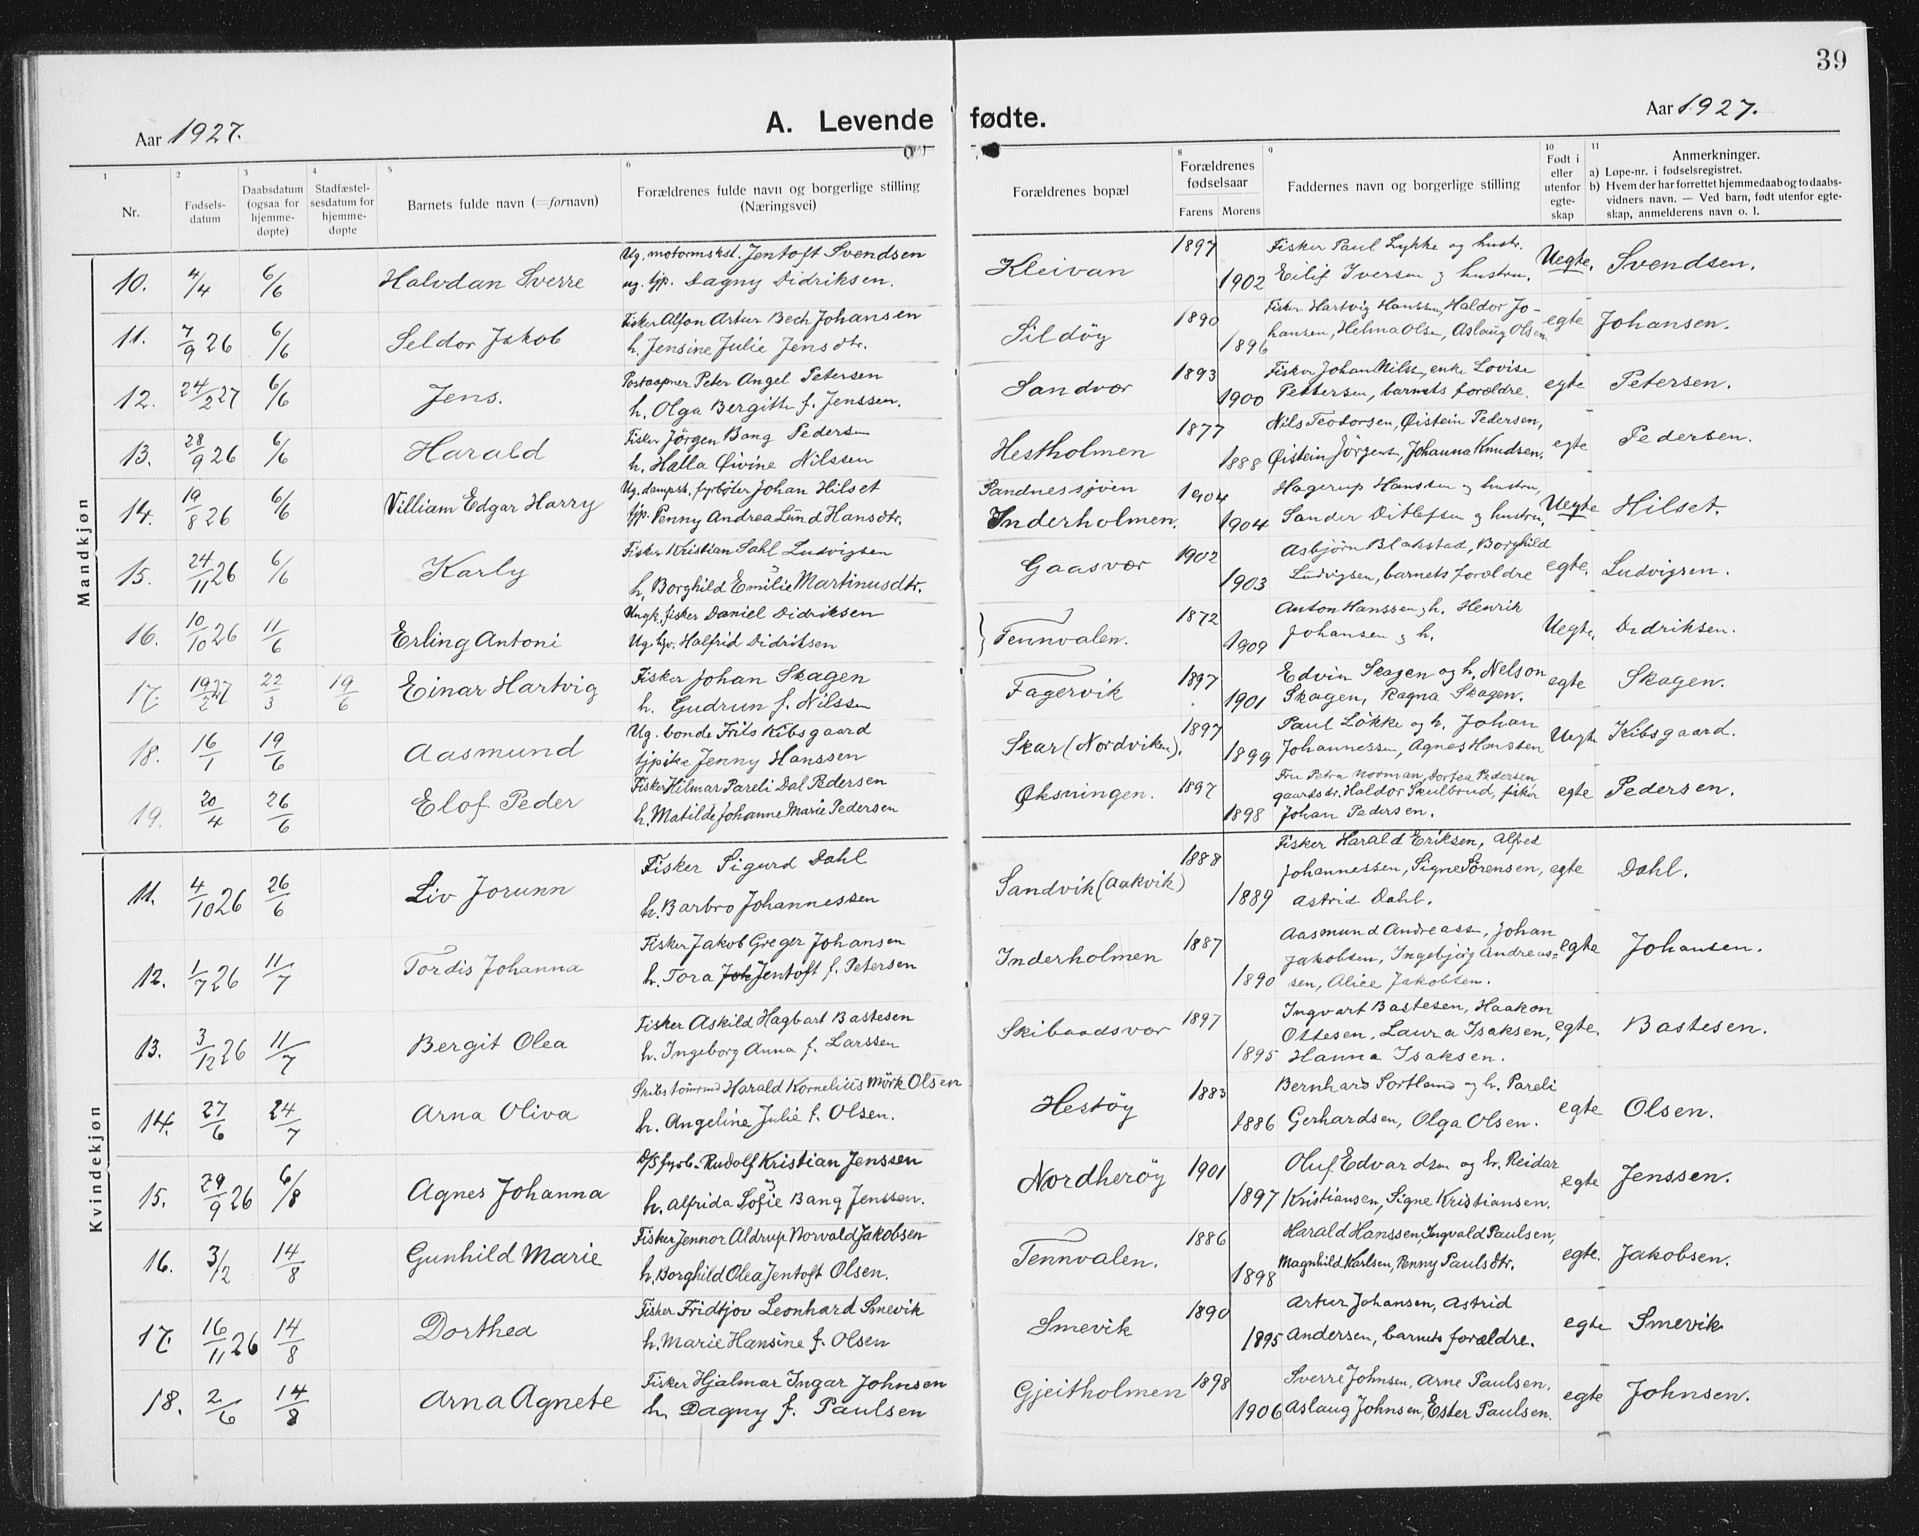 39
Aar 1927.
A. Levende fødte.
Aar 1927.
1 2 3 4 5 6 8 9 10 11
Nr.
Fødsels-
datum
Daabsdatum
(ogsaa for
hjemme-
døpte)
Stadfæstel-
sesdatum for
hjemme-
døpte
Barnets fulde navn (=fornavn)
Forældrenes fulde navn og borgerlige stilling
(Næringsvei)
Forældrenes bopæl
Forældrenes
fødselsaar
Farens Morens
Faddernes navn og borgerlige stilling
Født i
eller
utenfor
egte-
skap
Anmerkninger.
a) Løpe-nr. i fødselsregistret.
b) Hvem der har forrettet hjemmedaab og to daabs-
vidners navn. — Ved barn, født utenfor egte-
skap, anmelderens navn o. l.
Mandkjøn
10. 4/4 6/6 Halvdan Sverre
Ug. motormskst. Jentoft Svendsen
ug. tjp. Dagny Didriksen.
Kleivan 1897 1902
Fisker Paul Lykke og hustr.
Eilif Iversen og hustru.
Uegte. Svendsen.
11. 7/9 26 6/6 Seldor Jakob
Fisker Alfon Artur Bech Johansen
h. Jensine Julie Jensdtr.
Sildöy 1890 1896
Fisker Hartvig Hanssen, Haldor Jo-
hansen, Helma Olsen, Aslaug Olsen.
egte Johansen.
12. 24/2 27 6/6 Jens.
Postaapner Peter Angel Petersen
h. Olga Bergitte f. Jenssen.
Sandvær 1893 1900
Fisker Johan Nilsen, enke Lovise
Pettersen, barnets forældre.
egte Petersen.
13. 28/9 26 6/6 Harald
Fisker Jörgen Bang Pedersen
h. Hælla Øivine Nilssen
Hestholmen 1877 1888
Nils Teodorsen, Øistein Pedersen,
Øistein Jörgensen, Johanna Knudsen.
egte Pedersen.
14. 19/8 26 6/6 Villiam Edgar Harry
Ug. dampsk. fyrbøter Johan Hilset
tjp. Penny Andrea Lund Hansdtr.
Sandnessjöen
Inderholmen. 1904 1904
Hagerup Hanssen og hustru,
Sander Ditlefsen og hustru.
Uegte Hilset.
15. 24/11 26 6/6 Karly
Fisker Kristian Dahl Ludvigsen
h. Borghild Emilie Martinusdtr.
Gaasvær 1902 1903
Asbjørn Blakstad, Borghild
Ludvigsen, barnets forældre
egte. Ludvigsen.
16. 10/10 26 11/6 Erling Antoni
Ungk. fisker Daniel Didriksen
Ug. tjv. Halfrid Didriksen
Tennvalen. 1872 1909
Anton Hanssen og h. Henrik
Johansen og h.
Uegte. Didriksen.
17. 19/2 27 22/3 19/6 Einar Hartvig
Fisker Johan Skagen
h. Gudrun f. Nilssen
Fagervik 1897 1901
Edvin Skagen og h. Nelson
Skagen, Ragna Skagen.
egte Skagen.
18. 16/1 19/6 Aasmund
Ug. bonde Frits Kibsgaard
tjpike Jenny Hanssen
Skar (Nordviken). 1897 1899
Paul Løkke og h. Johan
Johannessen, Agnes Hanssen
Uegte Kibsgaard.
19. 20/4 26/6 Elof Peder
Fisker Hilmar Pareli Dal Pedersen
h. Matilde Johanne Marie Pedersen
Øksningen. 1897 1898
Fru Petra Norman, Dortea Pedersen
gaardstr. Haldor Skulbrud, fisker
Johan Pedersen.
egte Pedersen.
Kvindekjøn
11. 4/10 26 26/6 Liv Jorunn
Fisker Sigurd Dahl
h. Barbro Johannessen
Sandvik (Aakvik) 1888 1889
Fisker Harald Eriksen, Alfred
Johannessen, Signe Sørensen,
Astrid Dahl.
egte Dahl.
12. 1/7 26 11/7 Tordis Johanna
Fisker Jakob Greger Johansen
h. Tora Joh Jentoft f. Petersen
Inderholmen 1887 1890
Aasmund Andreass, Johan
Jakobsen, Ingebjörg Andreas=
sen, Alice Jakobsen.
egte Johansen.
13. 3/12 26 11/7 Bergit Olea
Fisker Askild Hagbart Bastesen
h. Ingeborg Anna f. Larssen
Skibaadsvær 1897 1895
Ingvart Bastesen, Haakon
Ottesen, Laura Isaksen,
Hanna Isaksen.
egte. Bastesen.
14. 27/6 24/7 Arna Oliva
Skibstömrmd Harald Kornelius Mörk Olsen
h. Angeline Julie f. Olsen.
Hestöy 1883 1886
Bernhard Sortland og h. Pareli
Gerhardsen, Olga Olsen.
egte Olsen.
15. 29/9 26 6/8 Agnes Johanna
D/S fyrb. Rudolf Kristian Jenssen
h. Alfrida Sofie Bang Jenssen.
Nordheröy 1901 1897
Oluf Edvardsen og h. Reidar
Kristiansen, Signe Kristiansen.
egte Jenssen.
16. 3/2 14/8 Gunhild Marie
Fisker Jennor Aldrup Norvald Jakobsen
h. Borghild Olea Jentoft Olsen.
Tennvalen. 1886 1898
Harald Hanssen, Ingvald Paulsen,
Magnhild Karlsen, Penny Paulsdtr.
egte. Jakobsen.
17. 16/11 26 14/8 Dorthea
Fisker Fridtjov Leonhard Smevik
h. Marie Hansine f. Olsen
Smevik 1890 1895
Artur Johansen, Astrid
Andersen, barnets forældre.
egte Smevik
18. 2/6 14/8 Arna Agnete
Fisker Hjalmar Ingar Johnsen
h. Dagny f. Paulsen
Gjeitholmen 1898 1906
Sverre Johnsen, Arne Paulsen.
Aslaug Johnsen, Ester Paulsen.
egte Johnsen.